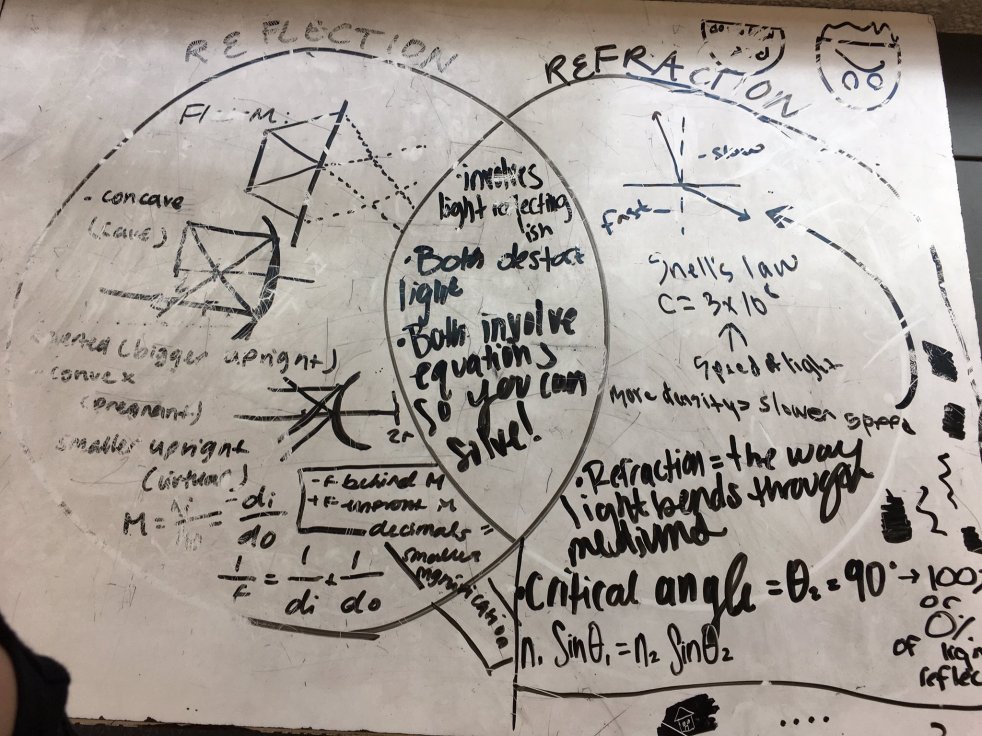 REFLECTION
- concave
(cave)
(bigger upright)
convex
(pregnant)
smaller upright
(virtual)
2r
M = = -di
do
-F behind M
+F infront M
decimals =
smaller
magnification
1/F = 1/di + 1/do
• involves
light reflecting
ish
• Both destort
light
• Both involve
equations
so you can
solve!
REFRACTION
- slow
fast -
Snell's law
C = 3x10⁶
↑
speed of light
more density = slower speed
• Refraction = the way
light bends through
mediums
• Critical angle = θ₂ = 90° → 100%
or
0%
of light
reflec
n₁ Sinθ₁ = n₂ Sinθ₂
....